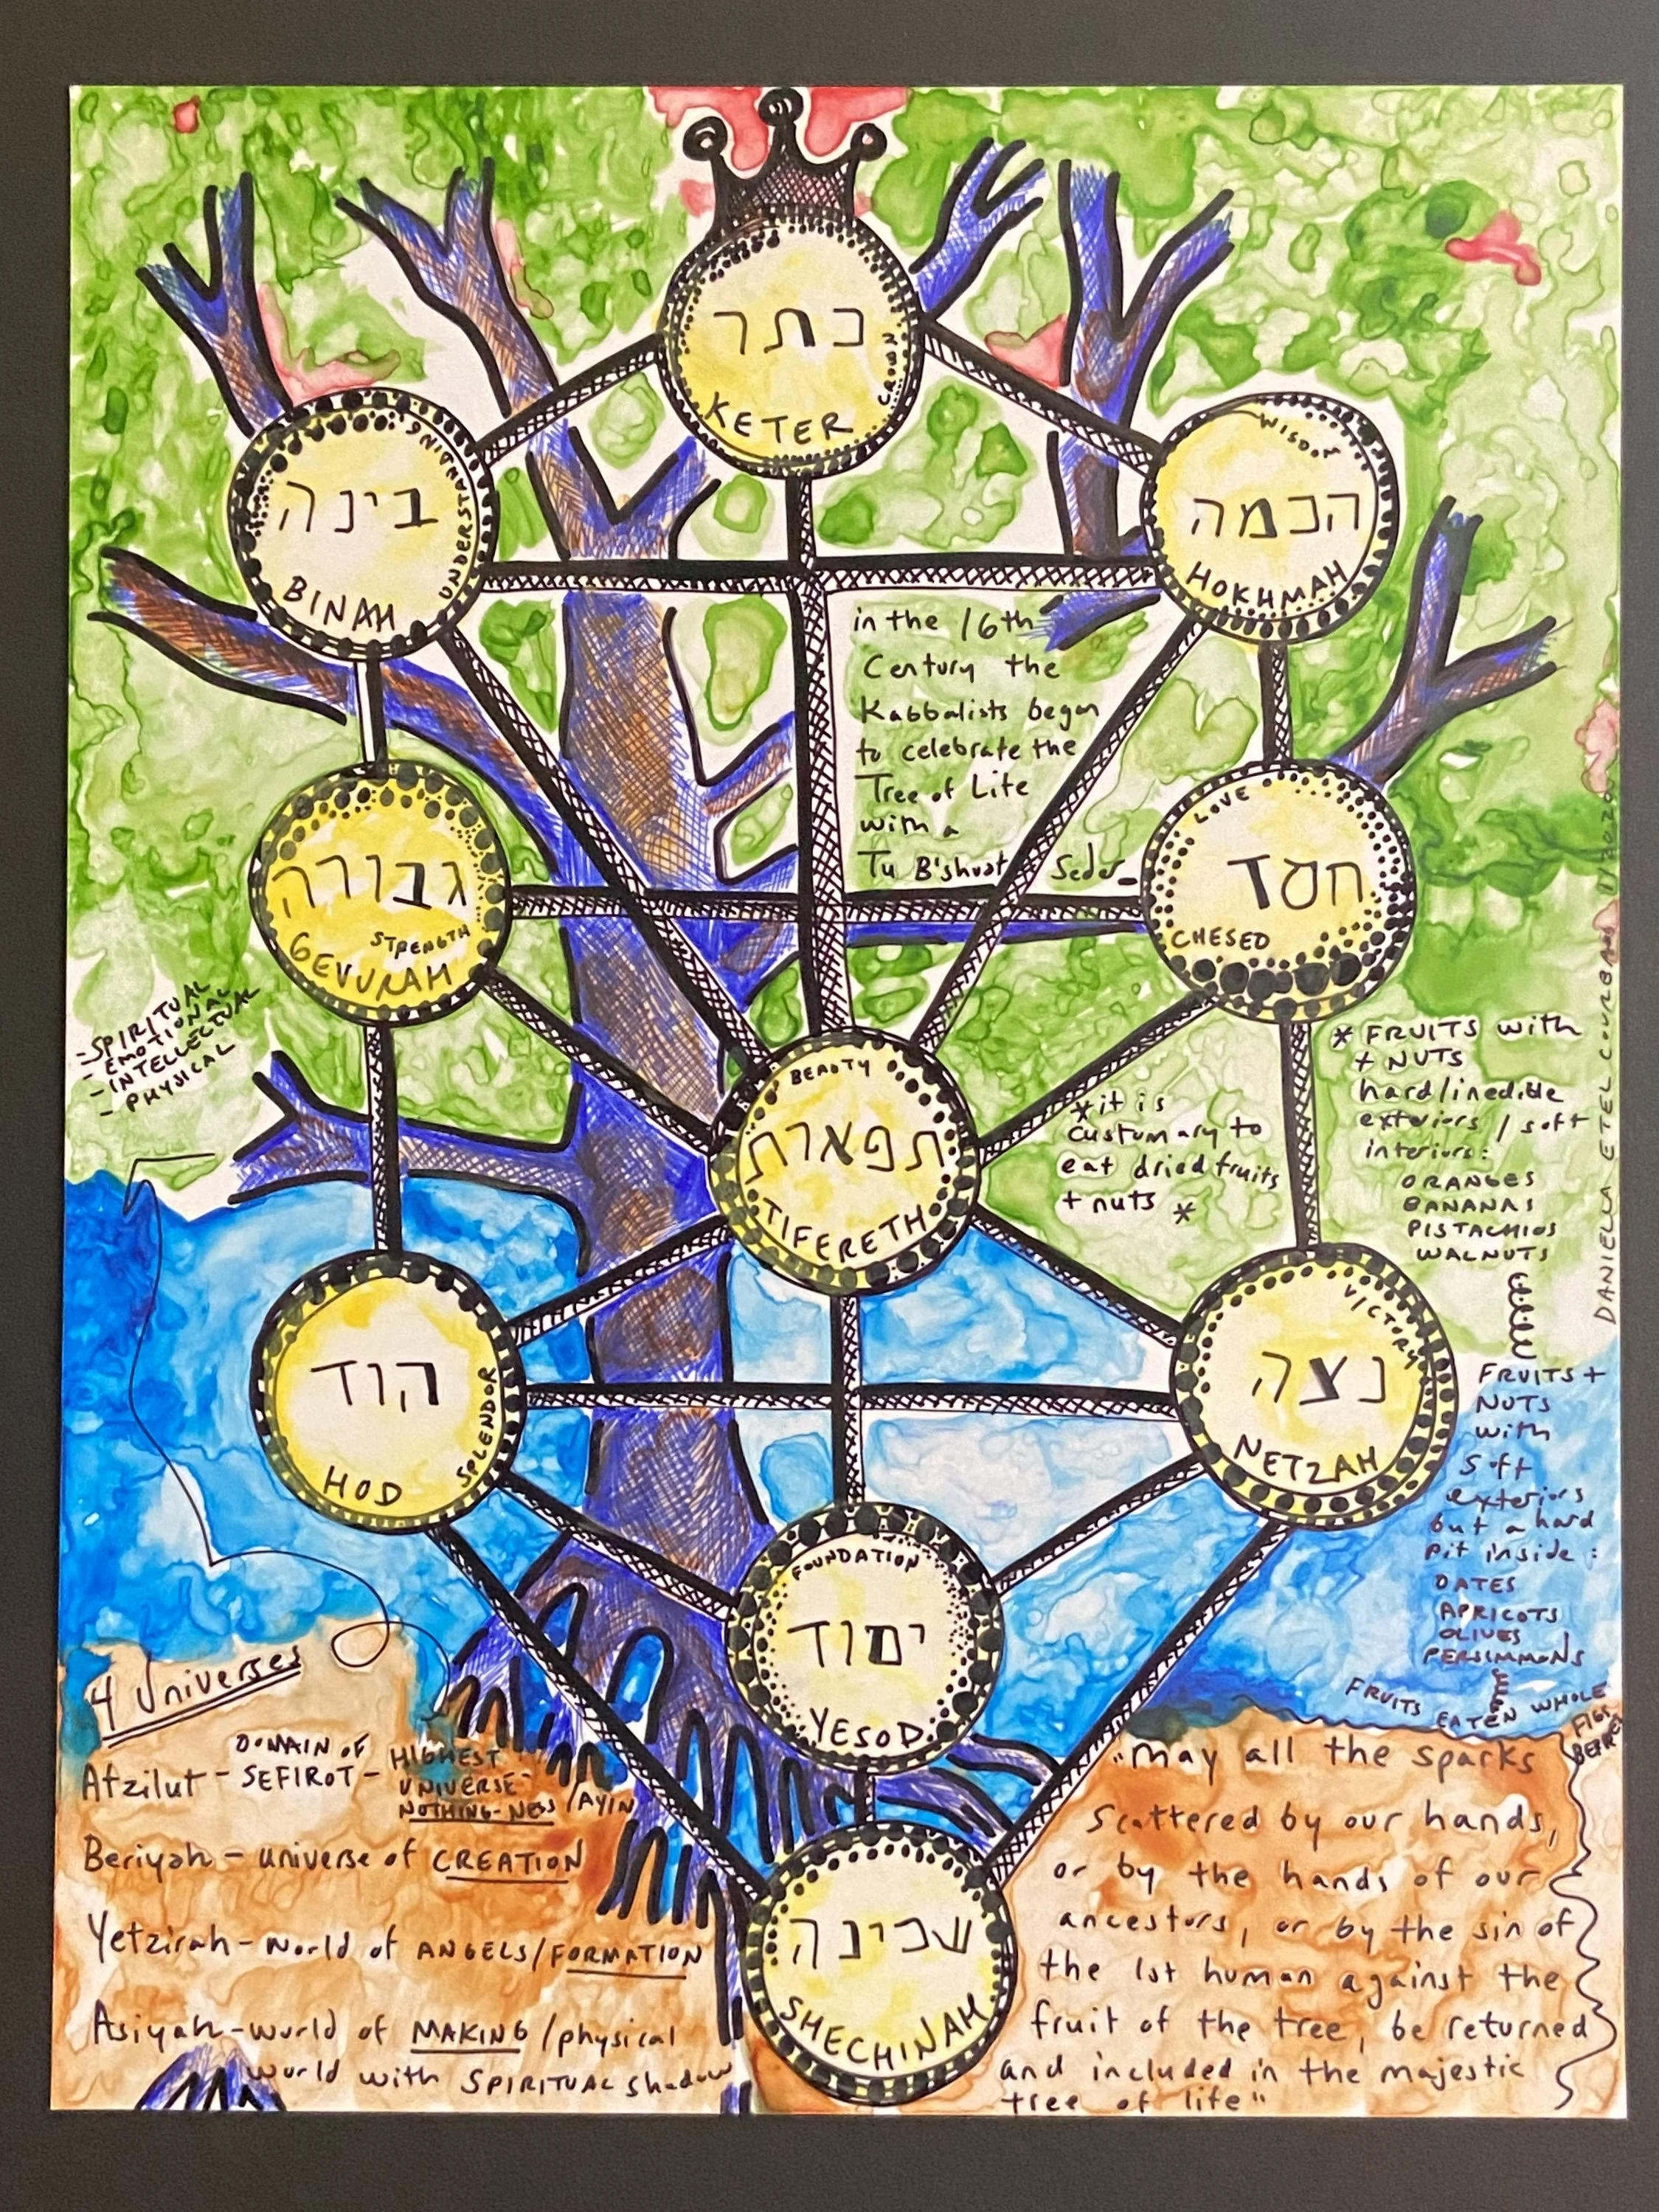 כתר
CROWN
KETER
UNDERSTANDING
בינה
BINAH
WISDOM
הכמה
HOKHMAH
in the 16th
Century the
Kabbalists began
to celebrate the
Tree of Life
with a
Tu B'shvat Seder
גבורה
STRENGTH
GEVURAH
LOVE
חסד
CHESED
-SPIRITUAL
-EMOTIONAL
-INTELLECTUAL
-PHYSICAL
BEAUTY
תפארת
TIFERETH
*it is
customary to
eat dried fruits
+ nuts *
* FRUITS with
+ NUTS
hard/inedible
exteriors / soft
interiors:
ORANGES
BANANAS
PISTACHIOS
WALNUTS
DANIELLA ETEL COURBAN
הוד
SPLENDOR
HOD
VICTORY
נצה
NETZAH
FRUITS +
NUTS
with
soft
exteriors
but a hard
pit inside:
DATES
APRICOTS
OLIVES
PERSIMMONS
FRUITS EATEN WHOLE
FIGS
FOUNDATION
יסוד
YESOD
4 Universes
Atzilut - DOMAIN OF
SEFIROT - HIGHEST
UNIVERSE-
NOTHING-NESS /AYIN
Beriyah - universe of CREATION
Yetzirah - world of ANGELS/FORMATION
Asiyah - world of MAKING /physical
world with SPIRITUAL shadow
שכינה
SHECHINAH
"may all the sparks
scattered by our hands,
or by the hands of our
ancestors, or by the sin of
the 1st human against the
fruit of the tree, be returned
and included in the majestic
tree of life"